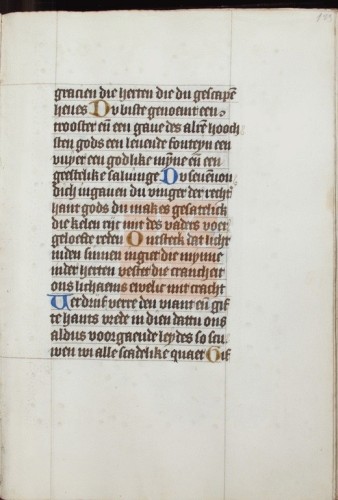 gracien die herten die du gescapē
heues Du biste genoemt een
trooster eñ een gaue des alre hooch
sten gods een leuende fonteyn een
vuyer een godlike mȳne eñ een
geestelike saluinge Du seuenuon
dich in gauen du vinger der recht
hant gods du makes gesatelick
die kelen rijc mit des vaders voer
geloefte reten Ontsteck dat licht
inden sinnen ingiet die mynne
inder herten vestet die crancheit
ons lichaems ewelic mit cracht
Verdrijf verre den viant eñ gif
te hants vrede in dien dattu ons
aldus voorgaende leydes so scu
wen wi alle scadelike quaet Gif